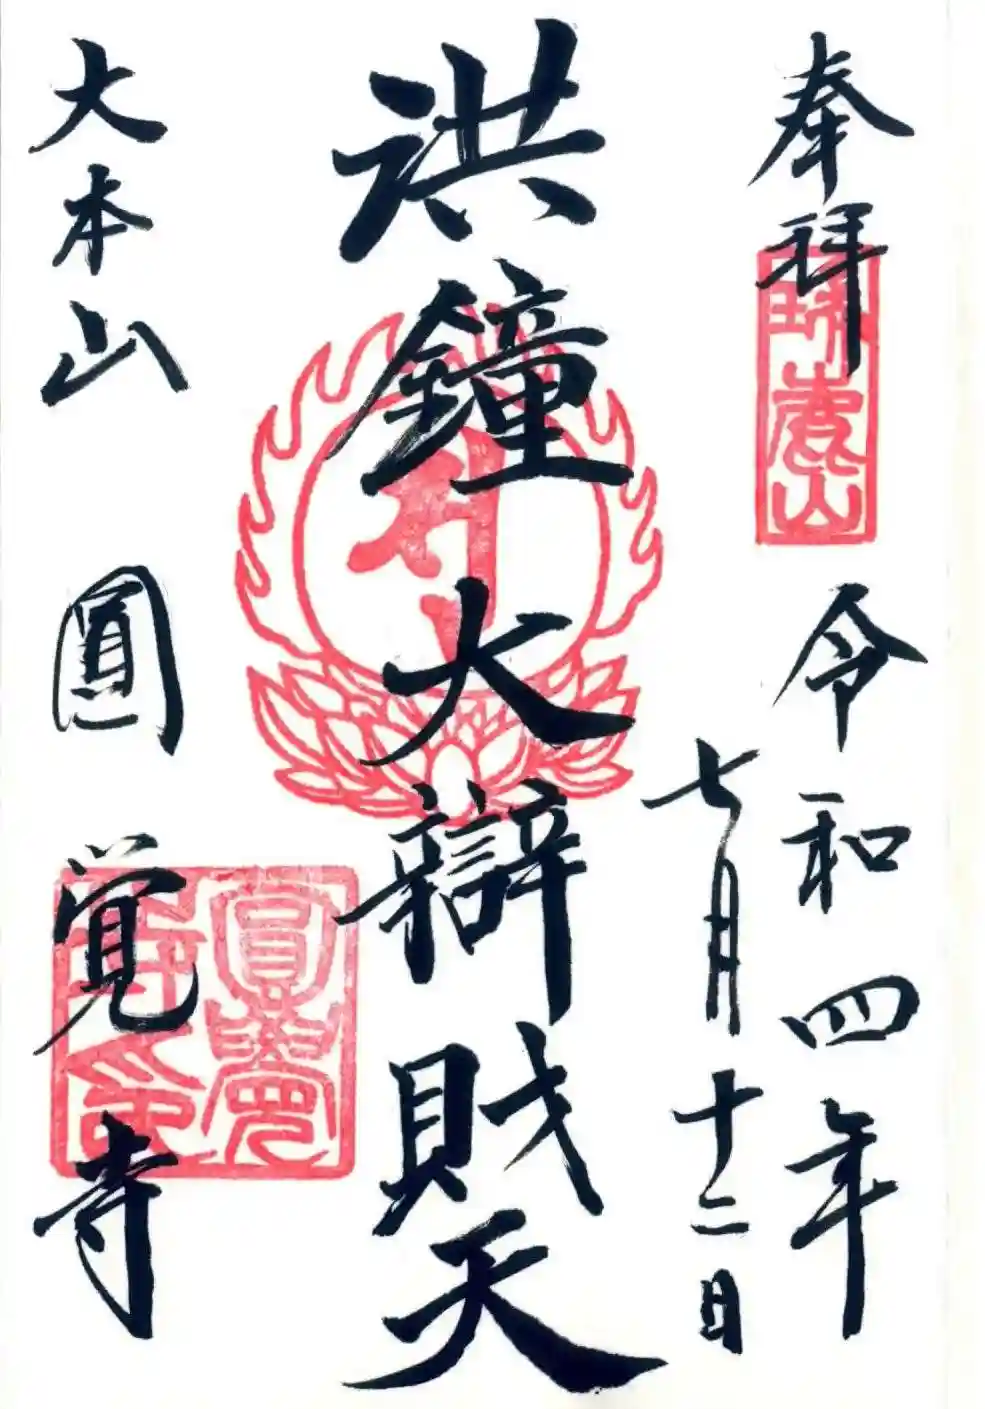 奉拝
瑞鹿山
令和四年
七月十二日
洪鐘大辯財天
大本山
圓覚寺
圓覺
寺印